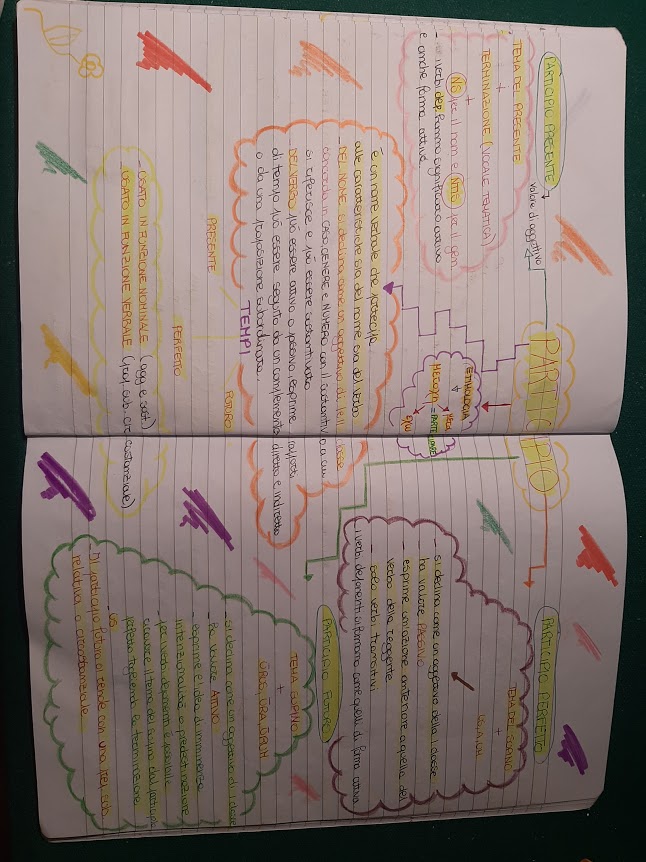 PARTICIPIO
PARTICIPIO PRESENTE
valore di aggettivo
TEMA DEL PRESENTE
+
TERMINAZIONE (VOCALE TEMATICA)
+
NS per il nom e NTIS per il gen
- i verbi dep. hanno significato attivo
e anche forma attiva
ETIMOLOGIA
μετέχω = PARTECIPARE
μετά
ἔχω
è un nome verbale che partecipa
alle caratteristiche sia del nome sia del verbo
DEL NOME si declina come un aggettivo di II classe
concorda in CASO, GENERE e NUMERO con il sostantivo a cui
si riferisce e può essere sostantivato
DEL VERBO può essere attivo o passivo, esprime rapporti
di tempo può essere seguito da un complemento diretto e indiretto
o da una proposizione subordinata.
TEMPI
PRESENTE
PERFETTO
FUTURO
- USATO IN FUNZIONE NOMINALE (agg e sost)
- USATO IN FUNZIONE VERBALE (prop sub. circostanziale)
PARTICIPIO PERFETTO
TEMA DEL SUPINO
+
US, A, UM
- si declina come un aggettivo della I classe
- ha valore PASSIVO
- esprime un'azione anteriore a quella del
verbo della reggente
- solo verbi transitivi
i verbi deponenti si formano come quelli di forma attiva
PARTICIPIO FUTURO
TEMA SUPINO
+
ŪRUS, ŪRA, ŪRUM
- si declina come un aggettivo di I classe
- ha valore ATTIVO
- esprime l'idea di imminenza
intenzionalità o predestinazione
- per i verbi deponenti è possibile
ricavare il tema del supino dal participio
perfetto togliendo la terminazione
- us
- Di participio futuro si rende con una prop sub.
relativa o circostanziale